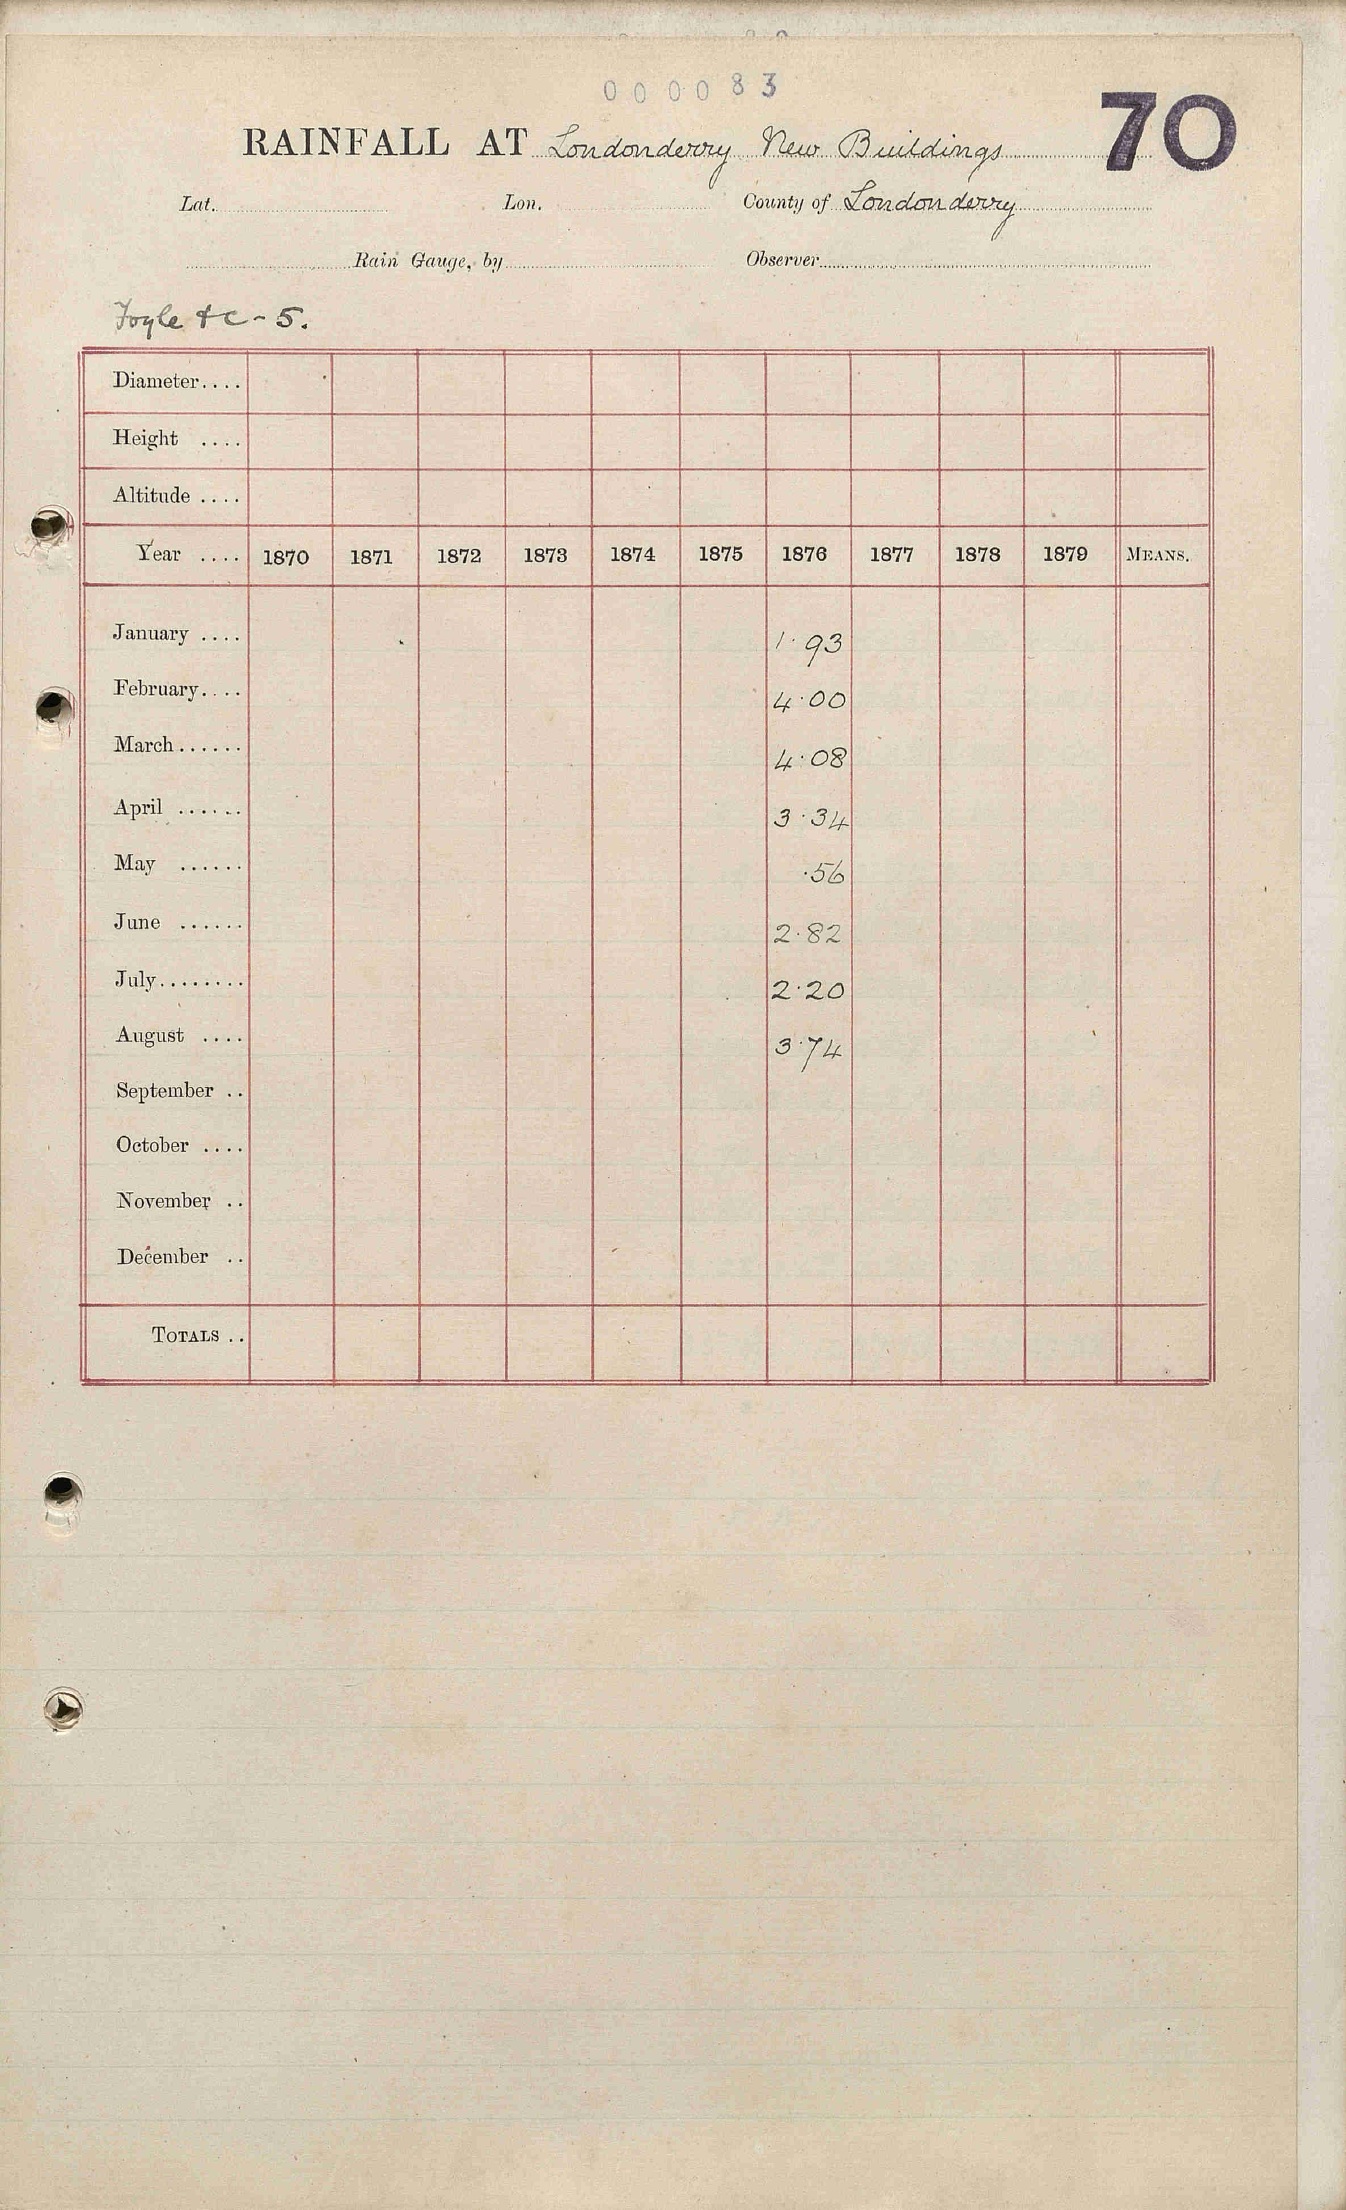 000083
70
RAINFALL AT Londonderry New Buildings
Lat. Lon. County of Londonderry
Rain Gauge, by Observer
Foyle &c - 5.
Diameter....
Height ....
Altitude ....
Year .... 1870 1871 1872 1873 1874 1875 1876 1877 1878 1879 MEANS.
January .... 1.93
February.... 4.00
March...... 4.08
April ...... 3.34
May ...... .56
June ...... 2.82
July........ 2.20
August .... 3.74
September ..
October ....
November ..
December ..
TOTALS ..